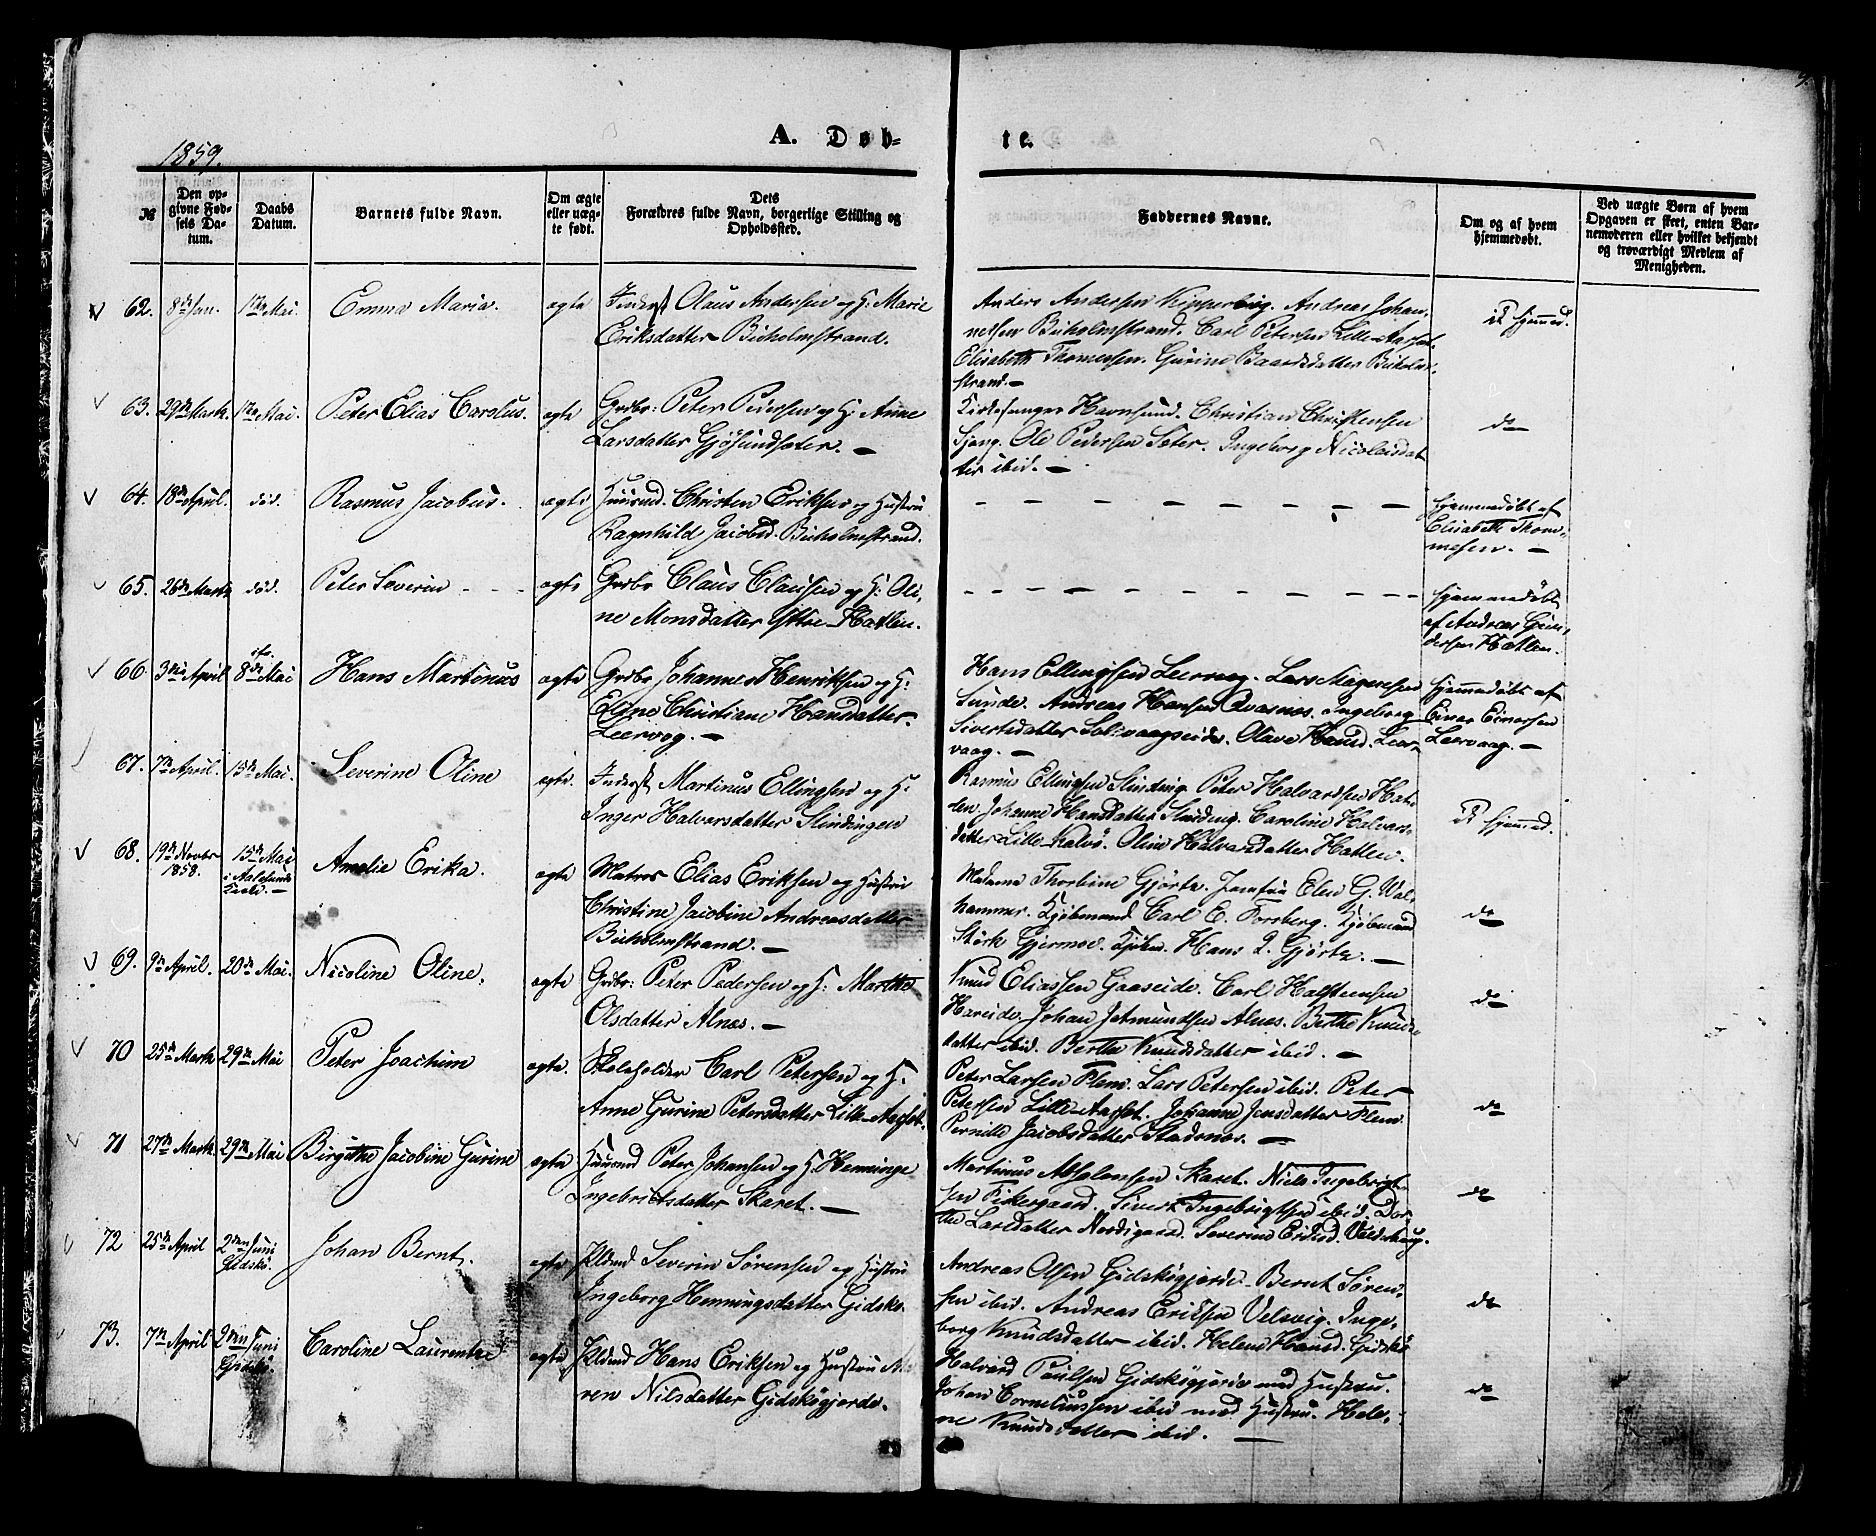 1859.
A. Døb-
te.
№
Den op-
givne Fød-
sels Da-
tum.
Daabs
Datum.
Barnets fulde Navn.
Om ægte
eller uæg-
te født.
Dets
Forældres fulde Navn, borgerlige Stilling og
Opholdssted.
Faddernes Navne.
Om og af hvem
hjemmedøbt.
Ved uægte Børn af hvem
Opgaven er skeet, enten Bar-
nemoderen eller hvilket bekjendt
og troværdigt Medlem af
Menigheden.
62. 8de Jan. 1ste Mai. Emma Maria. ægte Inderst Olaus Andersen og H: Marie
Eriksdatter Buholmstrand.
Anders Andersen Kipperberg. Andreas Johan-
nessen Buholmstrand. Carl Petersen Lille-Aarset.
Elisabeth Thomessen. Gurine Baardsdatter Buholm-
strand. —
hjemmed.
63. 29de Marts. 1ste Mai. Peter Elias Carolus. ægte Grdbr: Peter Pedersen og H: Anne
Larsdatter Gjøsundsæter. —
Kirkesanger Havnsund. Christian Christensen
Ole Pedersen Sæter. Ingeborg Nicolaidat-
ter ibid. —
do
64. 18de April. død. Rasmus Jacobus. ægte Huusmd. Christen Eriksen og Hustru
Ragnhild Jacobsd. Buholmstrand.
Hjemmedøbt af
Elisabeth Thom-
mesen. —
65. 26de Marts død. Peter Severin ægte Grdbr Claus Claussen og H: Oli-
ne Monsdatter Ystre-Hatlen.
Hjemmedøbt
af Andreas Gun-
dersen Hatlen.
66. 3die April 8de Mai Hans Martinus ægte Grdbr Johannes Henriksen og H:
Eline Christiane Hansdatter
Leervog. —
Hans Ellingsen Leervog. Lars Magnesen
Sunde. Andreas Hansen Qvasnes. Ingeborg
Sivertsdatter Solevaagseide. Olave Hansd. Leer-
vaag. —
Hjemmedøbt af
Einar Einarsen
Leervaag. —
67. 7de April. 15de Mai. Severine Oline ægte. Inderst Martinus Ellingsen og H:
Inger Halvarsdatter Slindingen
Rasmus Ellingsen Slinding. Peter Halvardsen Hat-
len. Johanne Hansdatter Slinding. Caroline Halvar-
datter Lille-Kalvø. Oline Halvarsdatter Hatlen.
hjemmed.
68. 19de Novbr
1858. 15de Mai
i Aalesunds
Kirke. — Amalie Erika. ægte Matros Elias Eriksen og Hustru
Christine Jacobine Andreasdatter
Buholmstrand. —
Madame Thorbine Gjørtz. Jomfru Elen G. Wal-
hammer. Kjøbmand Carl E. Forsberg. Kjøbmand
Størk Gjermoe. Kjøbm. Hans P. Gjørtz. —
do
69. 9de April. 20de Mai. Nicoline Oline. ægte Grdbr: Peter Pedersen og H: Marthe
Olsdatter Alnæs. —
Knud Eliassen Gaaseide. Carl Halsteensen
Hareide. Johan Jetmundsen Alnes. Berthe Knuds-
datter ibid. Berthe Knudsdatter ibid. —
do
70 25de Marts 29de Mai Peter Joachim ægte. Skoleholder Carl Petersen og H.
Anne Gurine Petersdatter Lille-Aarset.
Peter Larsen Flem. Lars Petersen ibid. Peter
Petersen Lille-Aarset. Johanne Jensdatter Flem.
Pernille Jacobsdatter Stadsnes. —
do
71 27de Marts. 29de Mai Birgithe Jacobine Gurine ægte Huusmd Peter Johansen og H. Henninge
Ingebrictsdatter Skaret. —
Martinus Absalonsen Skaret. Niels Ingebrigt-
sen Fiskergaard. Sivert Ingebrigtsen ibid. Dor-
the Larsdatter Nordigaard. Severine Eriksd. Valderhaug.
do
72 25de April 2den Juni
Gidskø. Johan Bernt. ægte Pldmd Severin Sørensen og Hustru
Ingeborg Henningsdatter Gidskø.
Andreas Olsen Gidskøgjerde. Bernt Søren-
sen ibid. Andreas Eriksen Velsvig. Inge-
borg Knudsdatter ibid. Helene Hansd. Gidskø
do
73. 7de April 2den Juni
Gidskø. Caroline Laurentze ægte Pldmd Hans Eriksen og Hustru Ma-
ren Nilsdatter Gidskøgjerde.
Halvard Paulsen Gidskøgjerde med Hustru.
Johan Corneliussen ibid med Hustru. Hele-
ne Knudsdatter ibid. —
do